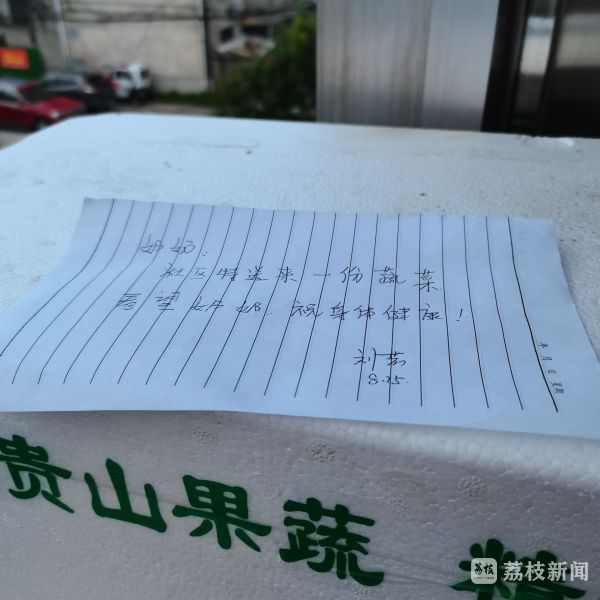 奶奶:
社区特送来一份蔬菜
看望奶奶.祝身体健康!
刘
8.25.
年 月 日 星期
贵山果蔬 精
荔枝 荔枝新闻